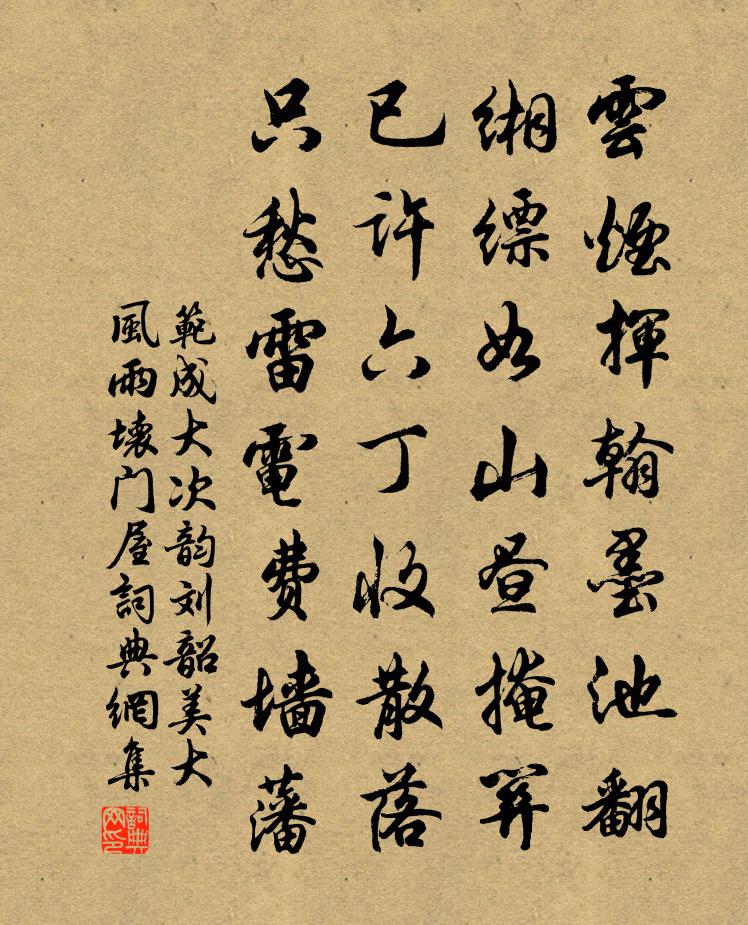 雲煙揮翰墨池翻
緗縹如山昼掩关
已許六丁收散落
只愁雷電費墙藩
範成大次韵刘韶美大
風雨壊门屋詞典網集
詞典网印